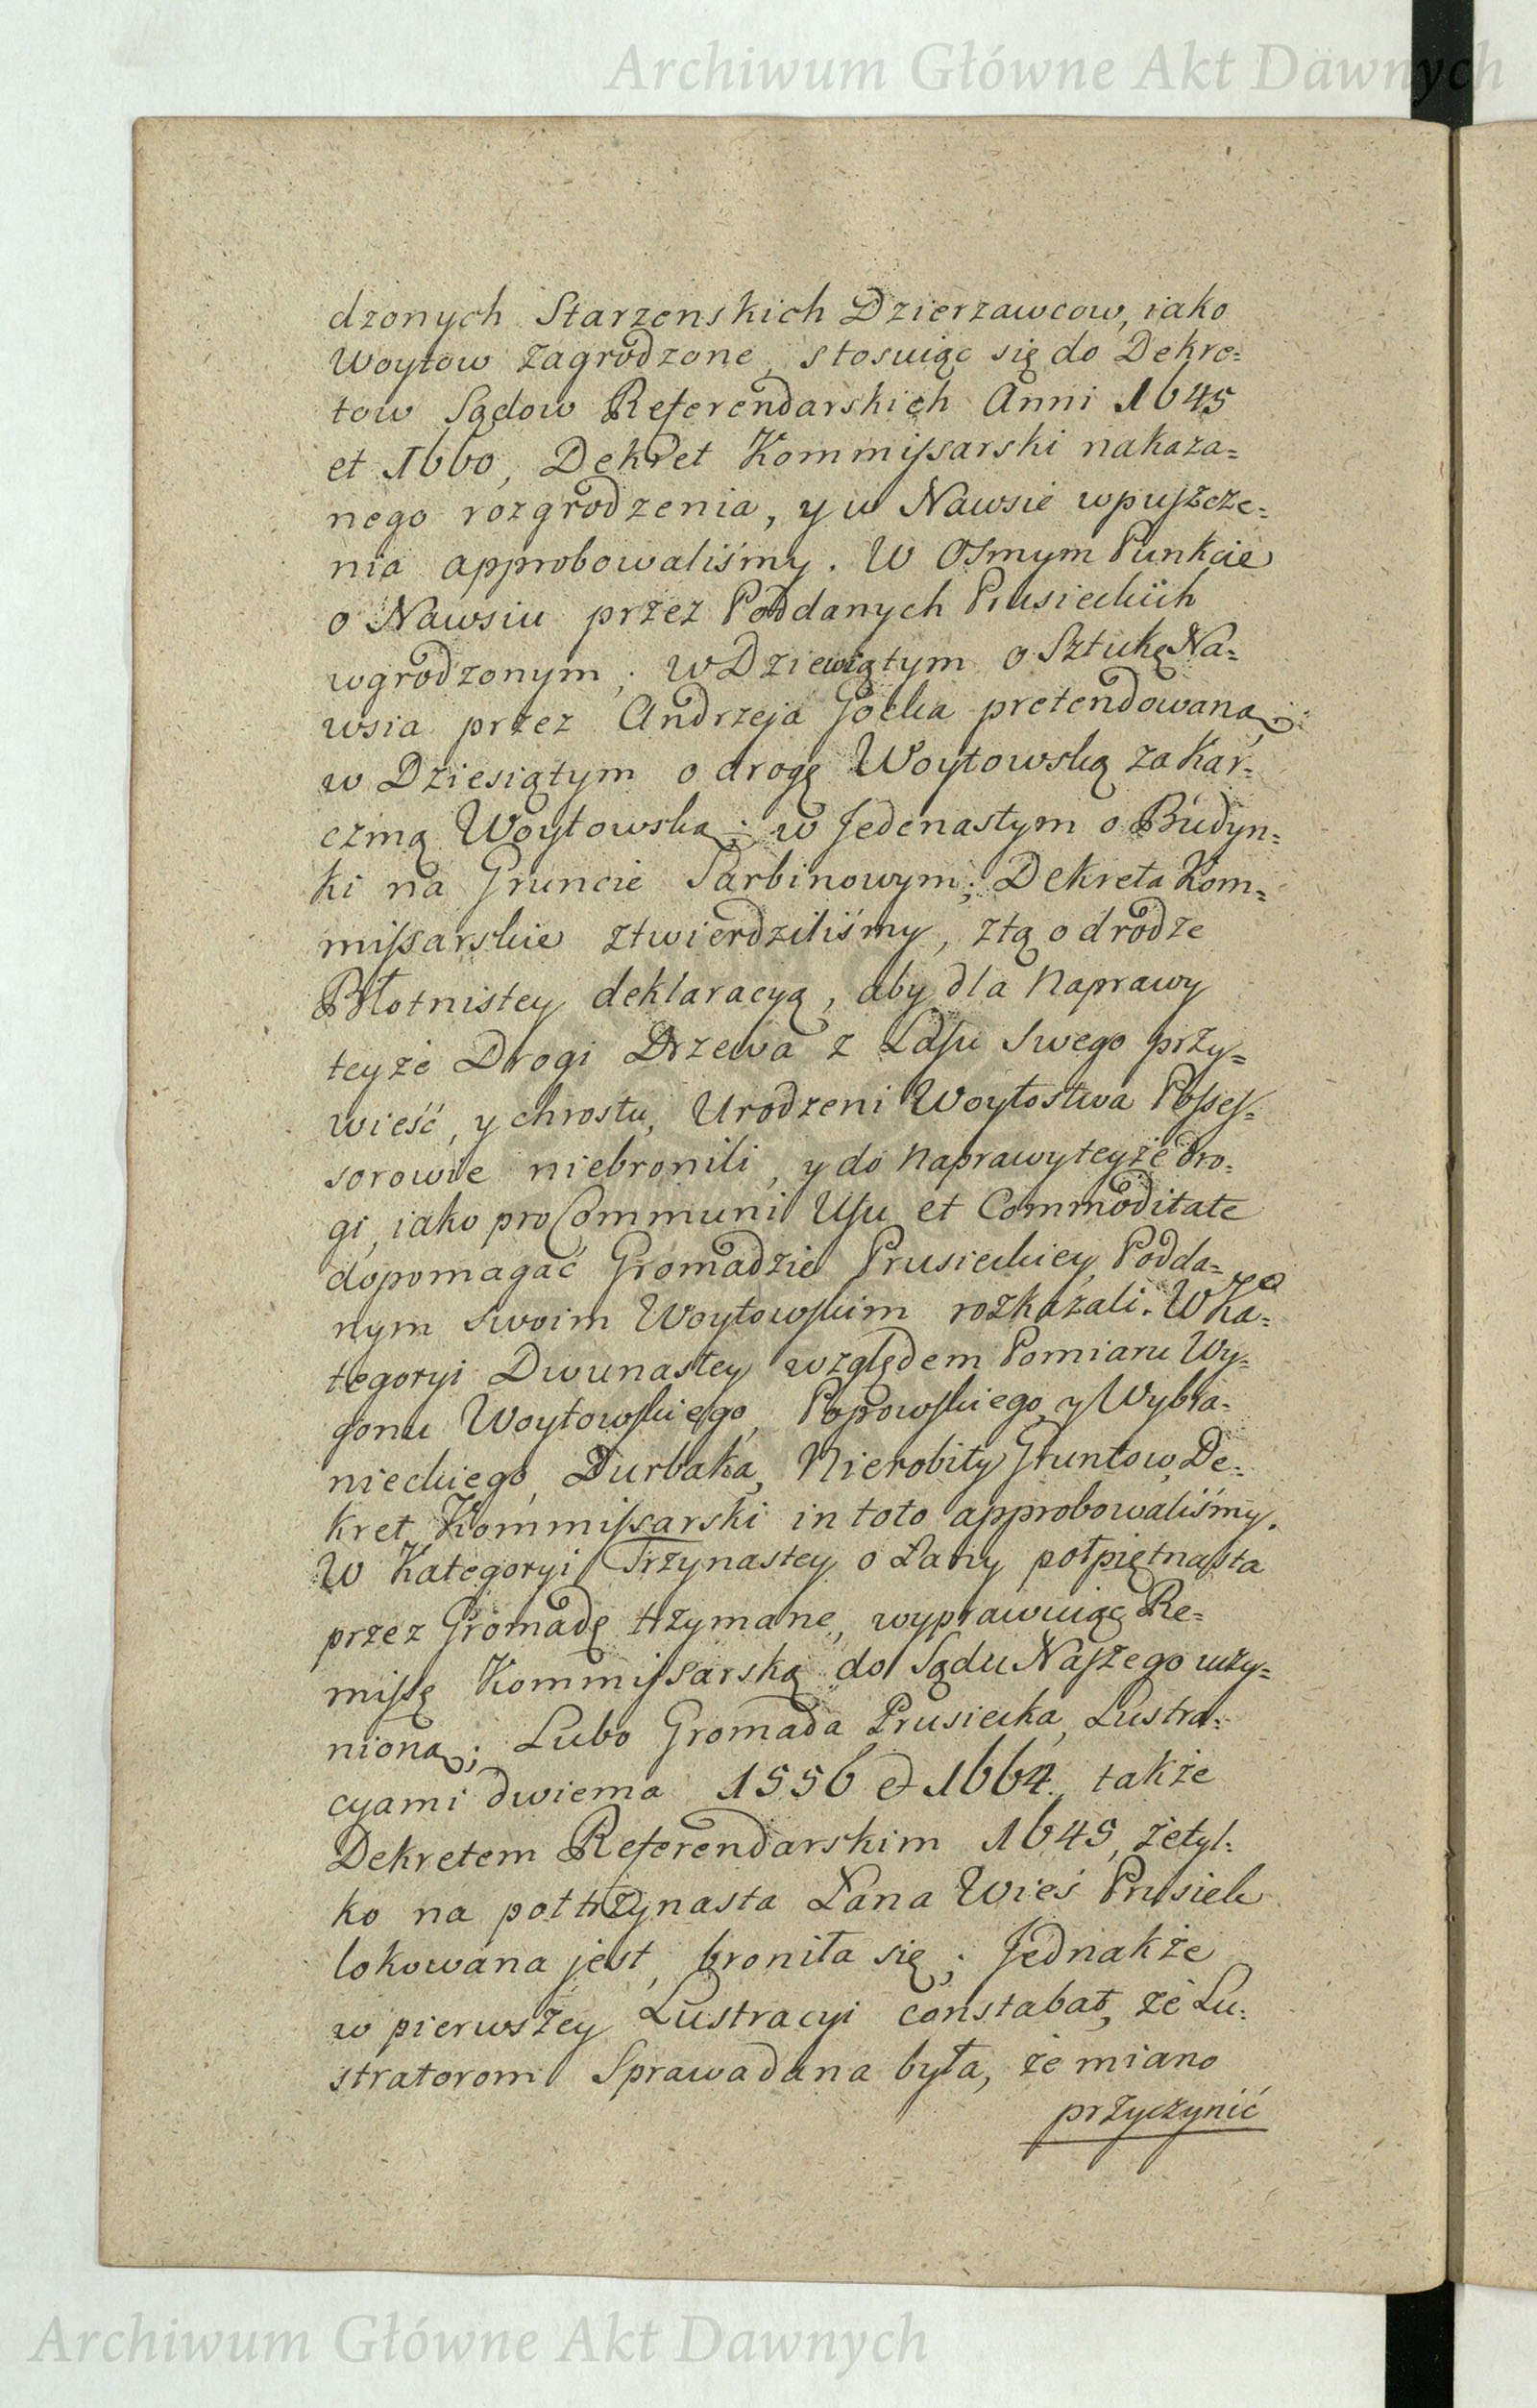 Archiwum Główne Akt Dawnych
dzonych Starzenskich Dzierzawcow, iako
Woytow zagrodzone, stosuiąc się do Dekre=
tow Sądow Referendarskich Anni 1645
et 1660, Dekret Kommissarski nakaza=
nego rozgrodzenia, y w Nawsie wpuszcze=
nia approbowaliśmy. W Osmym Punkcie
o Nawsiu przez Poddanych Prusieckich
wgrodzonym; w Dziewiątym o Sztukę Na=
wsia przez Andrzeja Gocka pretendowaną;
w Dziesiątym o drogę Woytowską za Kar=
czmą Woytowską; w Jedenastym o Budyn=
ki na Gruncie Sarbinowym; Dekreta Kom=
missarskie ztwierdziliśmy, z tą o drodze
Błotnistey deklaracyą, aby dla Naprawy
teyże Drogi Drzewa z Lassu Swego przy=
wieść, y chrostu, Urodzeni Woytostwa Posses=
sorowie niebronili, y do Naprawy teyże dro=
gi, iako pro Communi Usu et Commoditate
dopomagać Gromadzie Prusieckiey, Podda=
nym swoim Woytowskim rozkazali. W Ka=
tegoryi Dwunastey względem Pomiaru Wy=
gonu Woytowskiego, Popowskiego, y Wybra=
nieckiego, Durbaka, Nierobity Gruntow, De=
kret Kommissarski in toto approbowaliśmy.
W Kategoryi Trzynastey o Łany połpiętnasta
przez Gromadę trzymane, wyprawuiąc Re=
missę Kommissarską do Sądu Naszego uczy=
nioną; Lubo Gromada Prusiecka, Lustra=
cyami dwiema 1556 et 1664, także
Dekretem Referendarskim 1645, że tyl=
ko na połtrzynasta Łana Wieś Prusiek
lokowana jest, broniła się; Jednakże
w pierwszey Lustracyi constabat, że Lu=
stratorom Sprawa dana była, że miano
przyczynić
Archiwum Główne Akt Dawnych